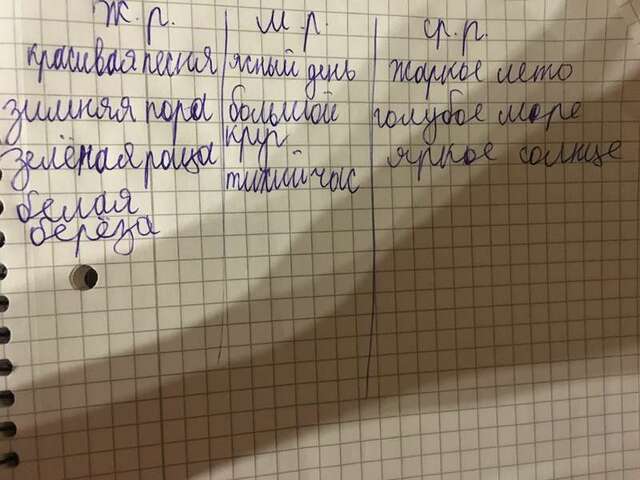 Ж. р.
красивая песня
зимняя пора
зелёная роща
белая
берёза
м. р.
ясный день
большой
круг
тихий час
ср. р.
жаркое лето
голубое море
яркое солнце